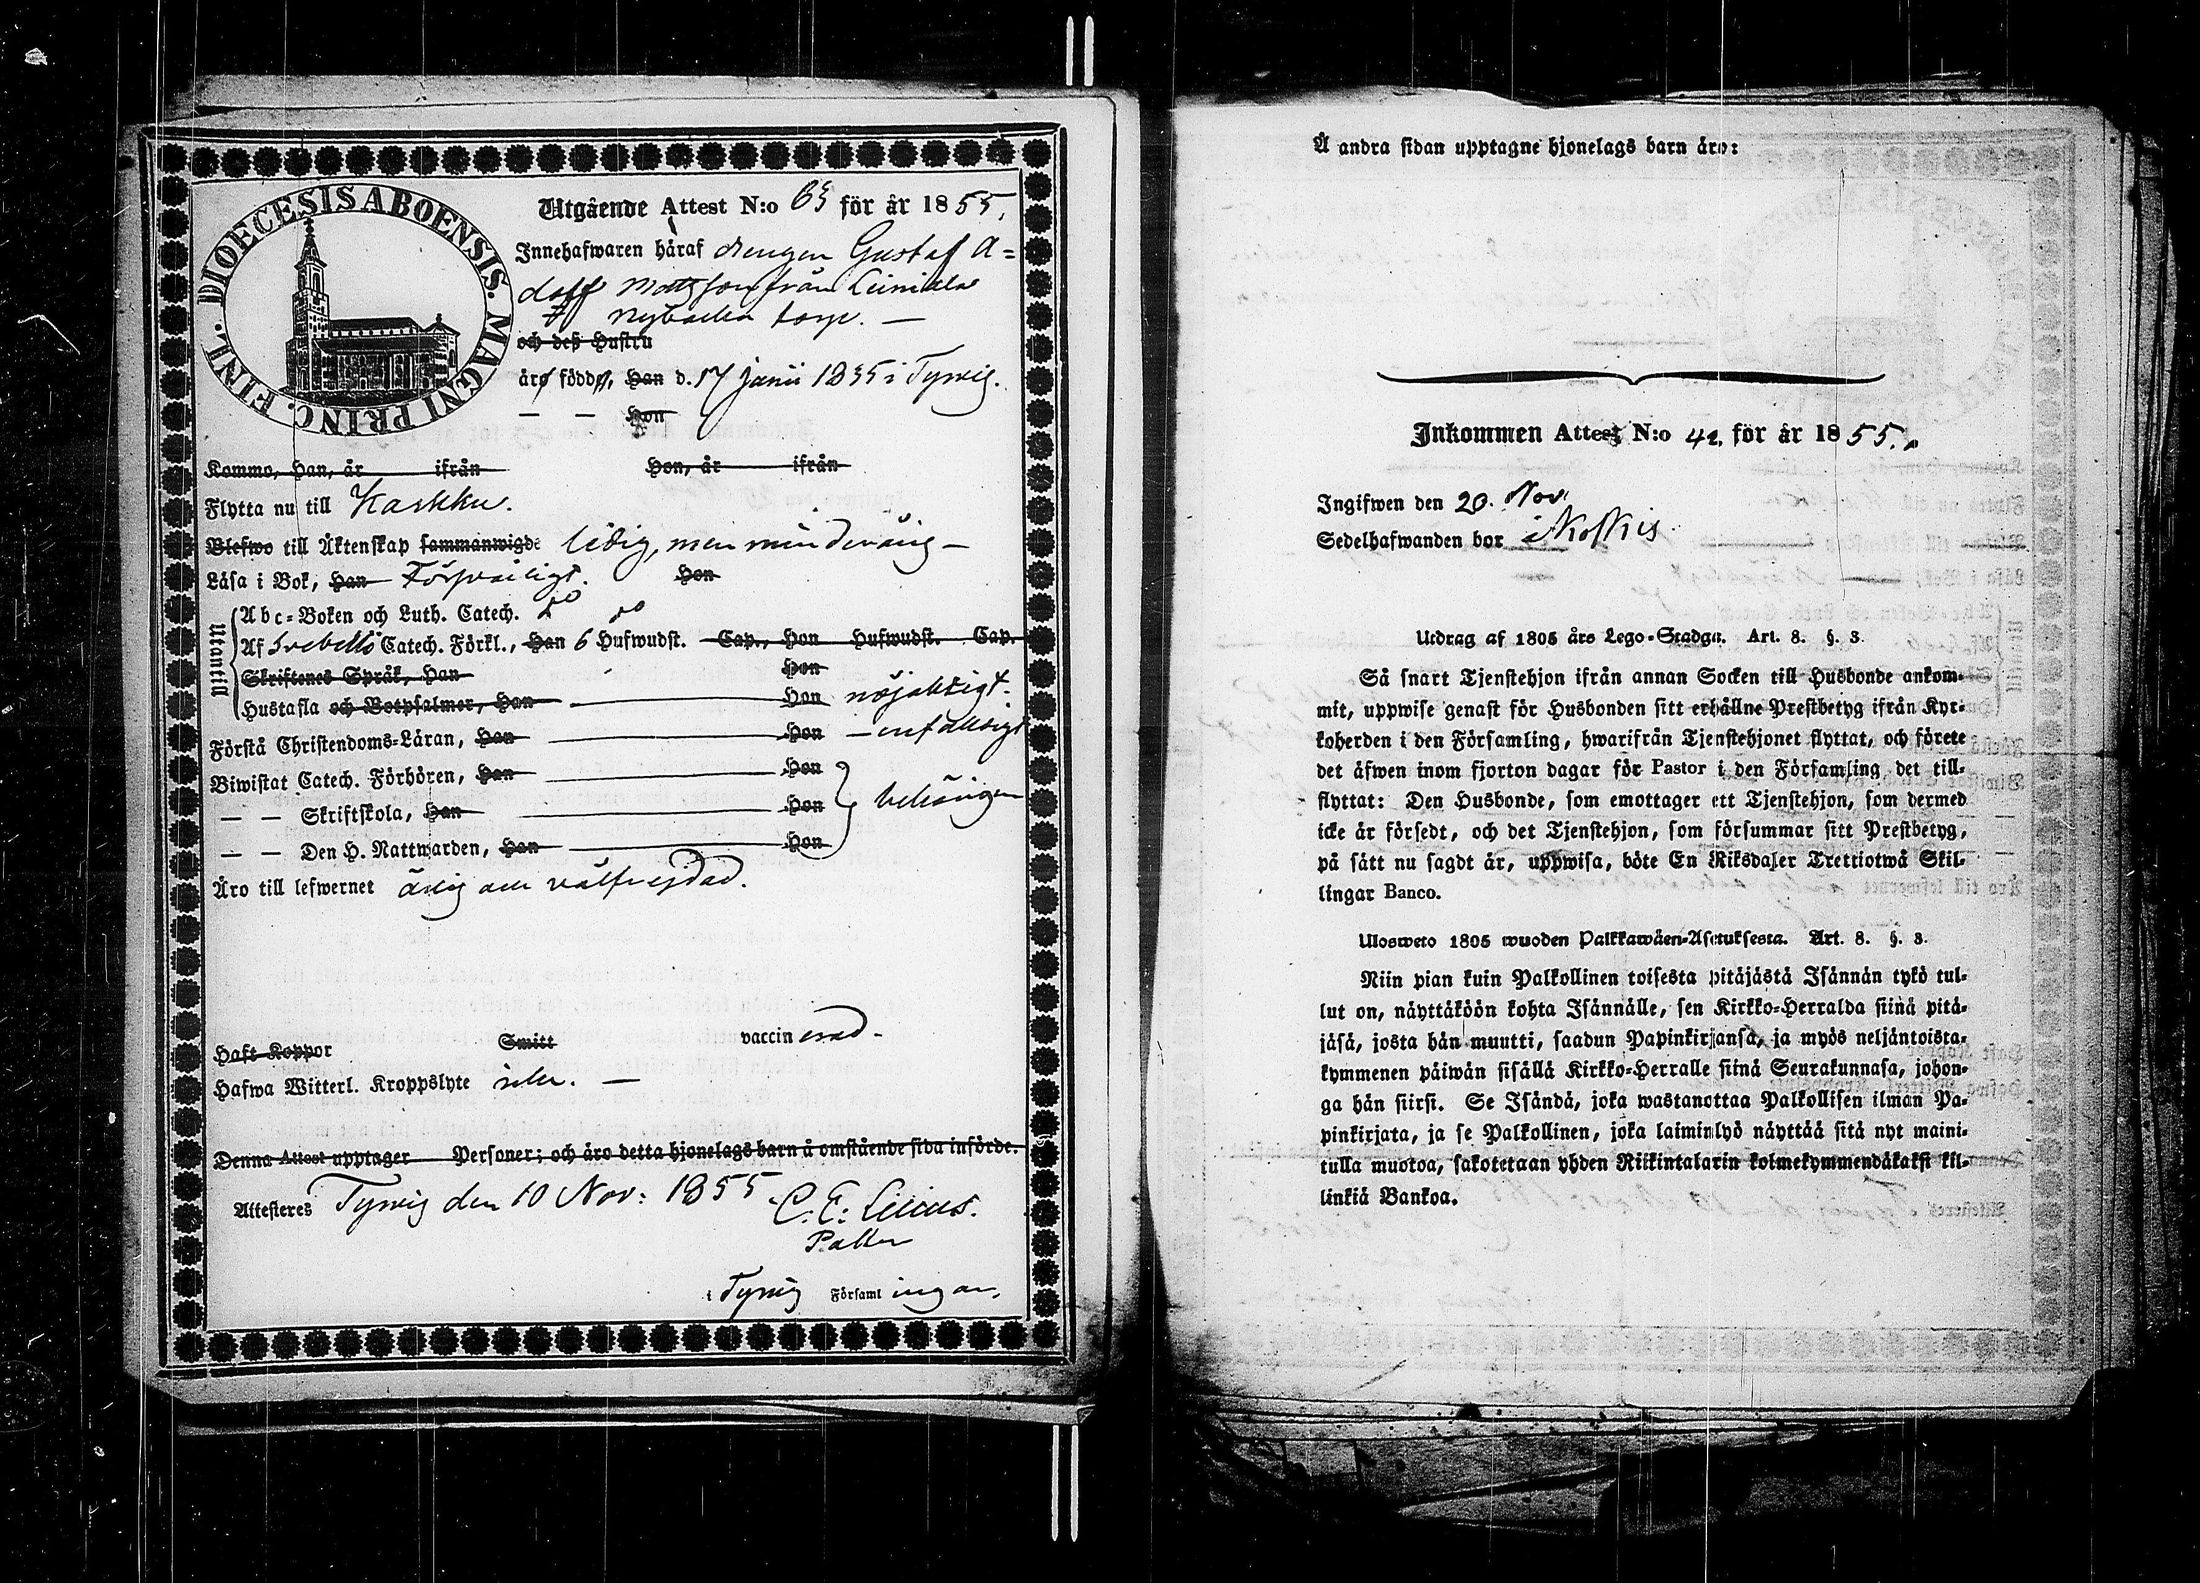 DIOECESIS ABOENSIS. MAGNI PRINC. FINL.
Utgående Attest N:o 63 för år 1855.
Innehafwaren häraf drengen Gustaf A=
dolf Mattsson från Leiniala
Nybacka torp. —
och deß Hustru
äro födde, Han d. 17 junii 1835 i Tyrvis.
— — Hon
Kommo, Han, år ifrån Hon, år ifrån
Flytta nu till Karkku.
Blefwo till Äktenskap sammanwigde ledig, men minderårig —
Läsa i Bok, Han Försvarligt. Hon
Utantill
Abc-Boken och Luth. Catech. do do
Af Svebelii Catech. Förkl., Han 6 Hufwudst. Cap., Hon Hufwudst. Cap.
Skriftenes Språk, Han Hon
Hustafla och Botpsalmer, Han — Hon nöjaktigt.
Förstå Christendoms-Läran, Han — Hon — enfaldigt
Biwistat Catech. Förhören, Han — Hon
— — Skriftskola, Han — Hon behörigen
— — Den H. Nattwarden, Han — Hon
Äro till lefwernet ärlig och välfrejdad.
Haft Koppor Smitt vaccinerad.
Hafwa Witterl. Kroppslyte icke. —
Denna Attest upptager Personer; och äro detta hjonelags barn å omstående sida införde.
Attesteres Tyrvis den 10 Nov: 1855
C. E: Lilius.
Pastor
i Tyrvis Församlingar.
Å andra sidan upptagne hjonelags barn äro:
Inkommen Attest N:o 42. för år 1855.
Ingifwen den 20. Nov.
Sedelhafwanden bor i Koskis
Utdrag af 1805 års Lego-Stadga. Art. 8. §. 3.
Så snart Tjenstehjon ifrån annan Socken till Husbonde ankom-
mit, uppwise genast för Husbonden sitt erhållne Prestbetyg ifrån Kyr-
koherden i den Församling, hwarifrån Tjenstehjonet flyttat, och förete
det äfwen inom fjorton dagar för Pastor i den Församling det till-
flyttat: Den Husbonde, som emottager ett Tjenstehjon, som dermed
icke är försedt, och det Tjenstehjon, som försummar sitt Prestbetyg,
på sätt nu sagdt är, uppwisa, böte En Riksdaler Trettiotwå Skil-
lingar Banco.
Ulosweto 1805 wuoden Palkkawäen-Asetuksesta. Art. 8. §. 3.
Niin pian kuin Palkollinen toisesta pitäjästä Isännän tykö tul-
lut on, näyttäköön kohta Isännälle, sen Kirkko-Herralda siinä pitä-
jäsä, josta hän muutti, saadun Papinkirjansa, ja myös neljäntoista-
kymmenen päiwän sisällä Kirkko-Herralle siinä Seurakunnasa, johon-
ga hän siirsi. Se Isändä, joka wastanottaa Palkollisen ilman Pa-
pinkirjata, ja se Palkollinen, joka laiminlyö näyttää sitä nyt maini-
tulla muotoa, sakotetaan yhden Riikintalarin kolmekymmendäkaksi kil-
linkiä Bankoa.